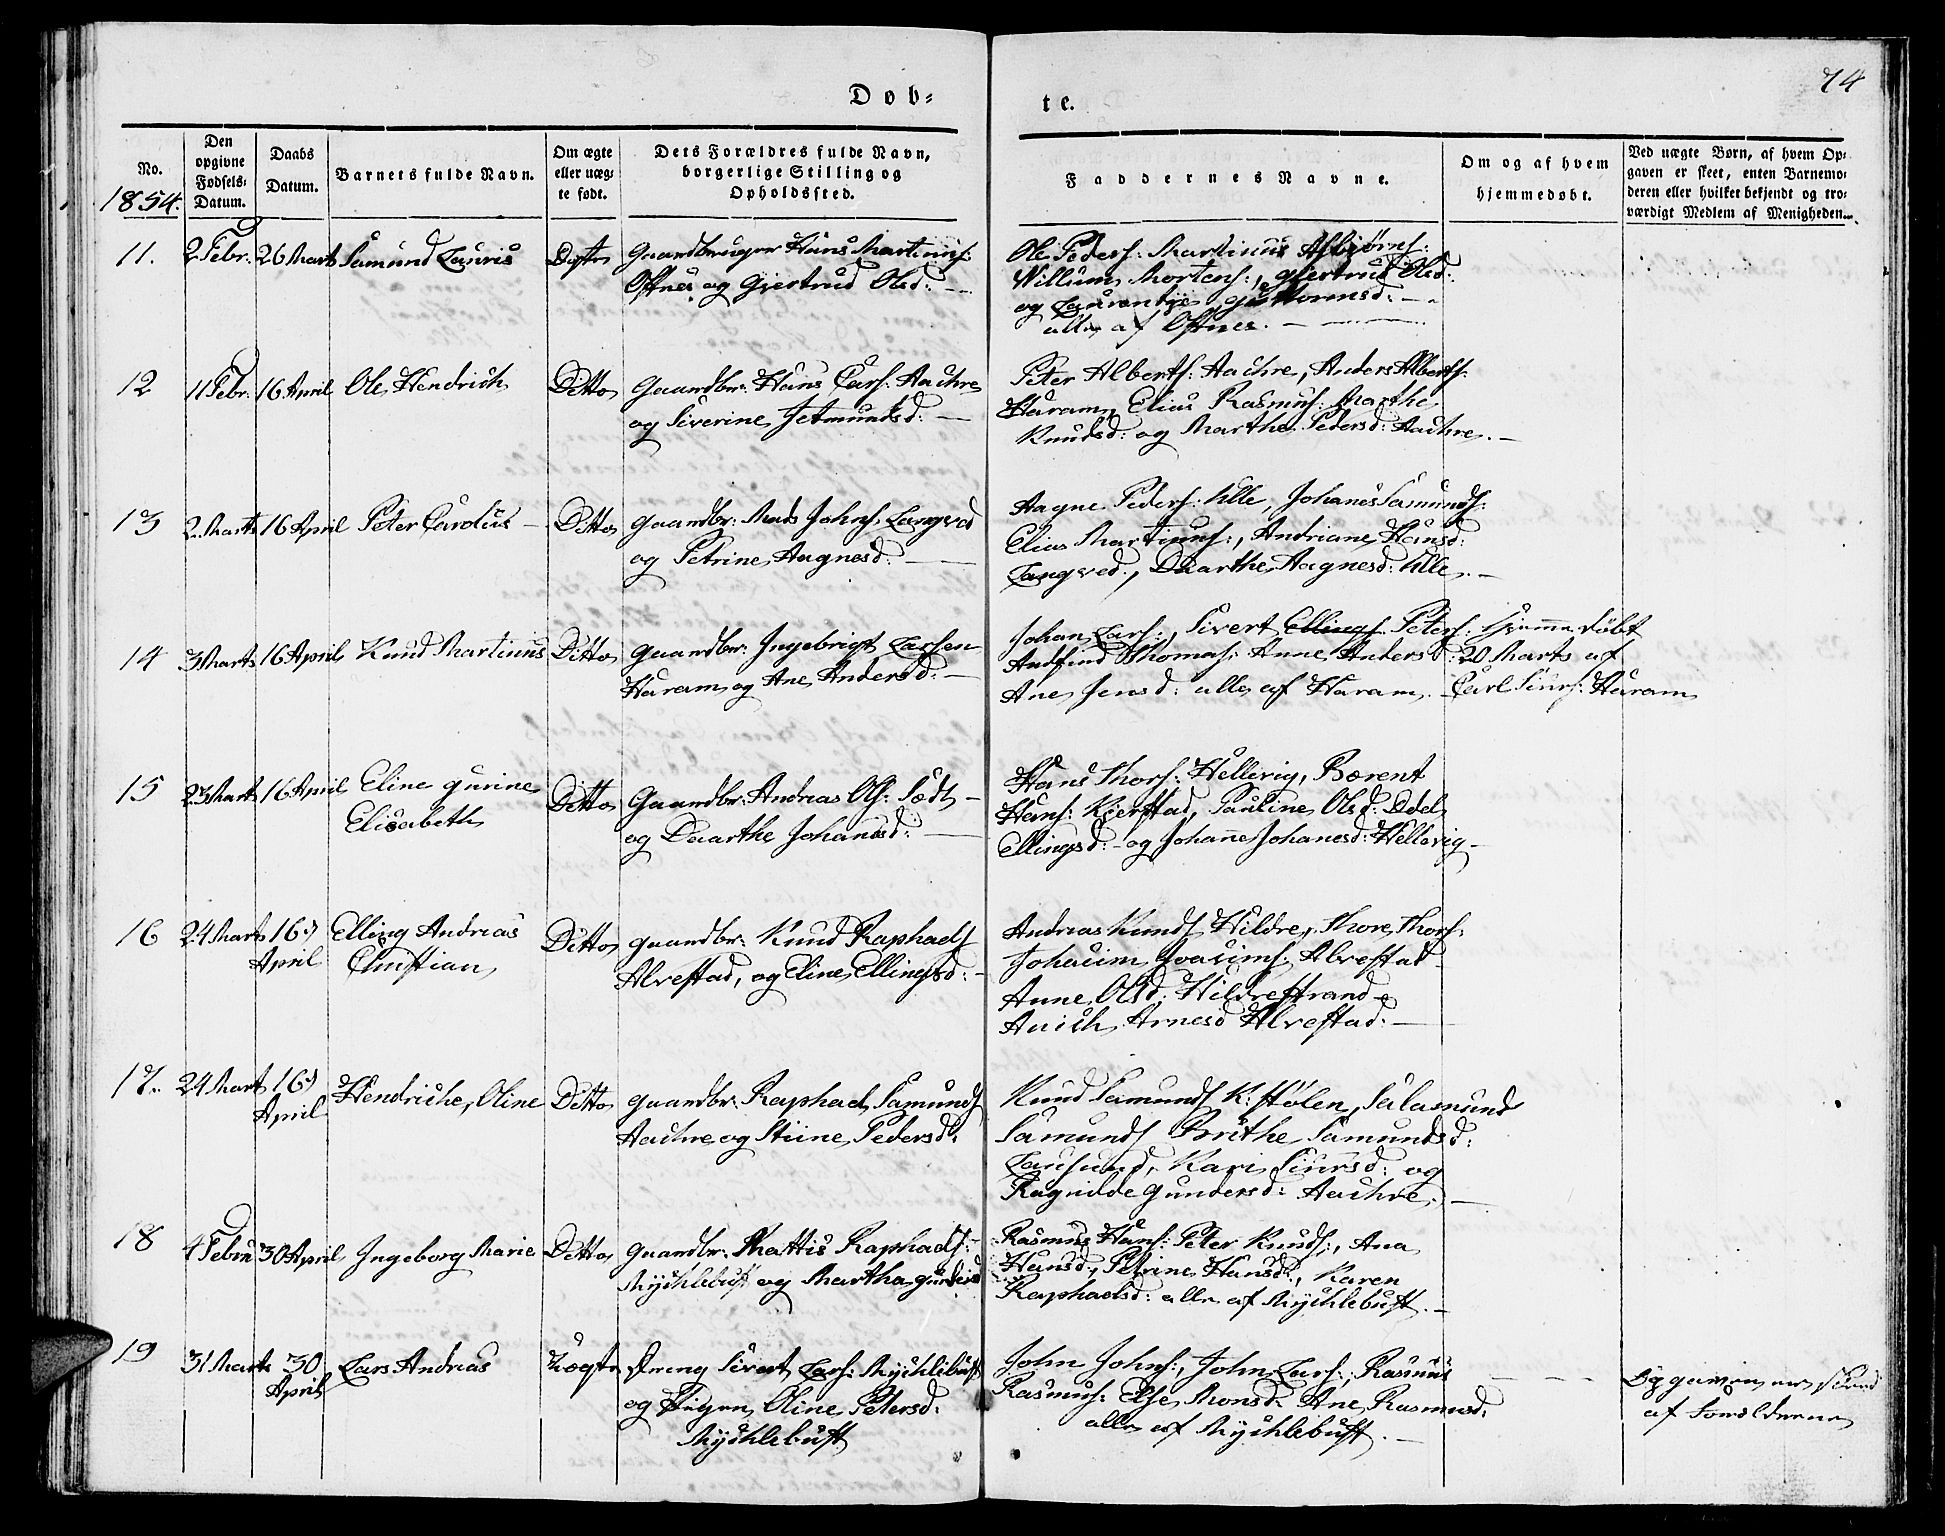 74
Døb-
te.
No.
Den opgivne Fødsels-Datum.
Daabs Datum.
Barnets fulde Navn.
Om ægte eller uæg-te født.
Dets Forældres fulde Navn, borgerlige Stilling og Opholdssted.
Faddernes Navne.
Om og af hvem hjemmedøbt.
Ved uægte Børn, af hvem Op-gaven er skeet, enten Barnemo-deren eller hvilket bekjendt og tro-værdigt Medlem af Menigheden.
1854.
11. 2 Febr: 26 Marts Samund Lauris Ditto Gaardbruger Hans Martinus:
og Gjertrud Olsd: —
Ole Peders: Martinus Asbjørns:
Willum Mortens:, Gjertrud Olsd:
og
alle af
12 11 Febr: 16 April Ole Hendrich Ditto Gaardbr: Hans Lars: Aachre
og Siverine Jetmundsd: —
Peter Alberts: Aachre, Anders Alberts:
Haram, Elias Rasmus: Marthe
Knudsd: og Marthe Pedersd: Aachre. —
13 2 Marts 16 April Peter Carolus — Ditto Gaardbr: Mads Johns: Langved
og Petrine Aagnesd: —
Aagne Peders: Ulle, Johanes Samunds:
Elias Martinus:, Andriane Hansd:
Langved., Daarthe Aagnesd: Ulle. —
14 3 Marts 16 April Knud Martinus Ditto Gaardbr: Ingebrigt Larsen
Haram og Ane Andersd: —
Johan Lars:, Sivert Ellings Peters:
Andfind Thomas: Anne Andersd:
Ane Jensd: alle af Haram. —
Hjemmedøbt
20 Marts af
Carl Siurs: Haram
15 23 Marts 16 April Eline Gurine
Elisabeth
Ditto Gaardbr: Andreas Ols: —
og Daarthe Johansd: —
Hans Thors: Hellevig, Bærent
Hans: Kierstad, Pauline Olsd:
Ellingsd: — og Johanne Johanesd: Hellevig —
16 24 Marts 16 April Elling Andreas
Christian
Ditto Gaardbr: Knud Raphaels
Alvestad, og Eline Ellingsd: —
Andreas Knuds Hildre, Thore Thors:
Johacim Joacims: Alvestad
Anne Olsd: Hildrestrand
Arnesd Alvestad: —
17. 24 Mart 16 April Hendriche, Oline Ditto Gaardbr: Raphael Samunds
Aachre og Stine Pedersd:
Knud Samunds K: stølen, Salamund
Samunds Brithe Samundsd:
Kari Siursd: og
Ragnilde Gundersd: Aachre. —
18 4 Febru 30 April Ingeborg Marie Ditto Gaardbr: Mattis Raphaels: —
Mychlebust og Martha
Rasmus Hans: Peter Knuds:, Ana
Hansd:, Petrine Hansd:, Karen
Raphaelsd: alle af Mychlebust. —
19 31 Marts 30 April Lars Andreas Uægte Dreng Sivert Lars: Mychlebust
og Oline Petersd:
Mychlebust
John Johns:, John Lars:, Rasmus
Rasmus: Else Monsd: Ane Rasmusd:
alle af Mychlebust. —
— — — Opgaven er skeed
af Forældrene